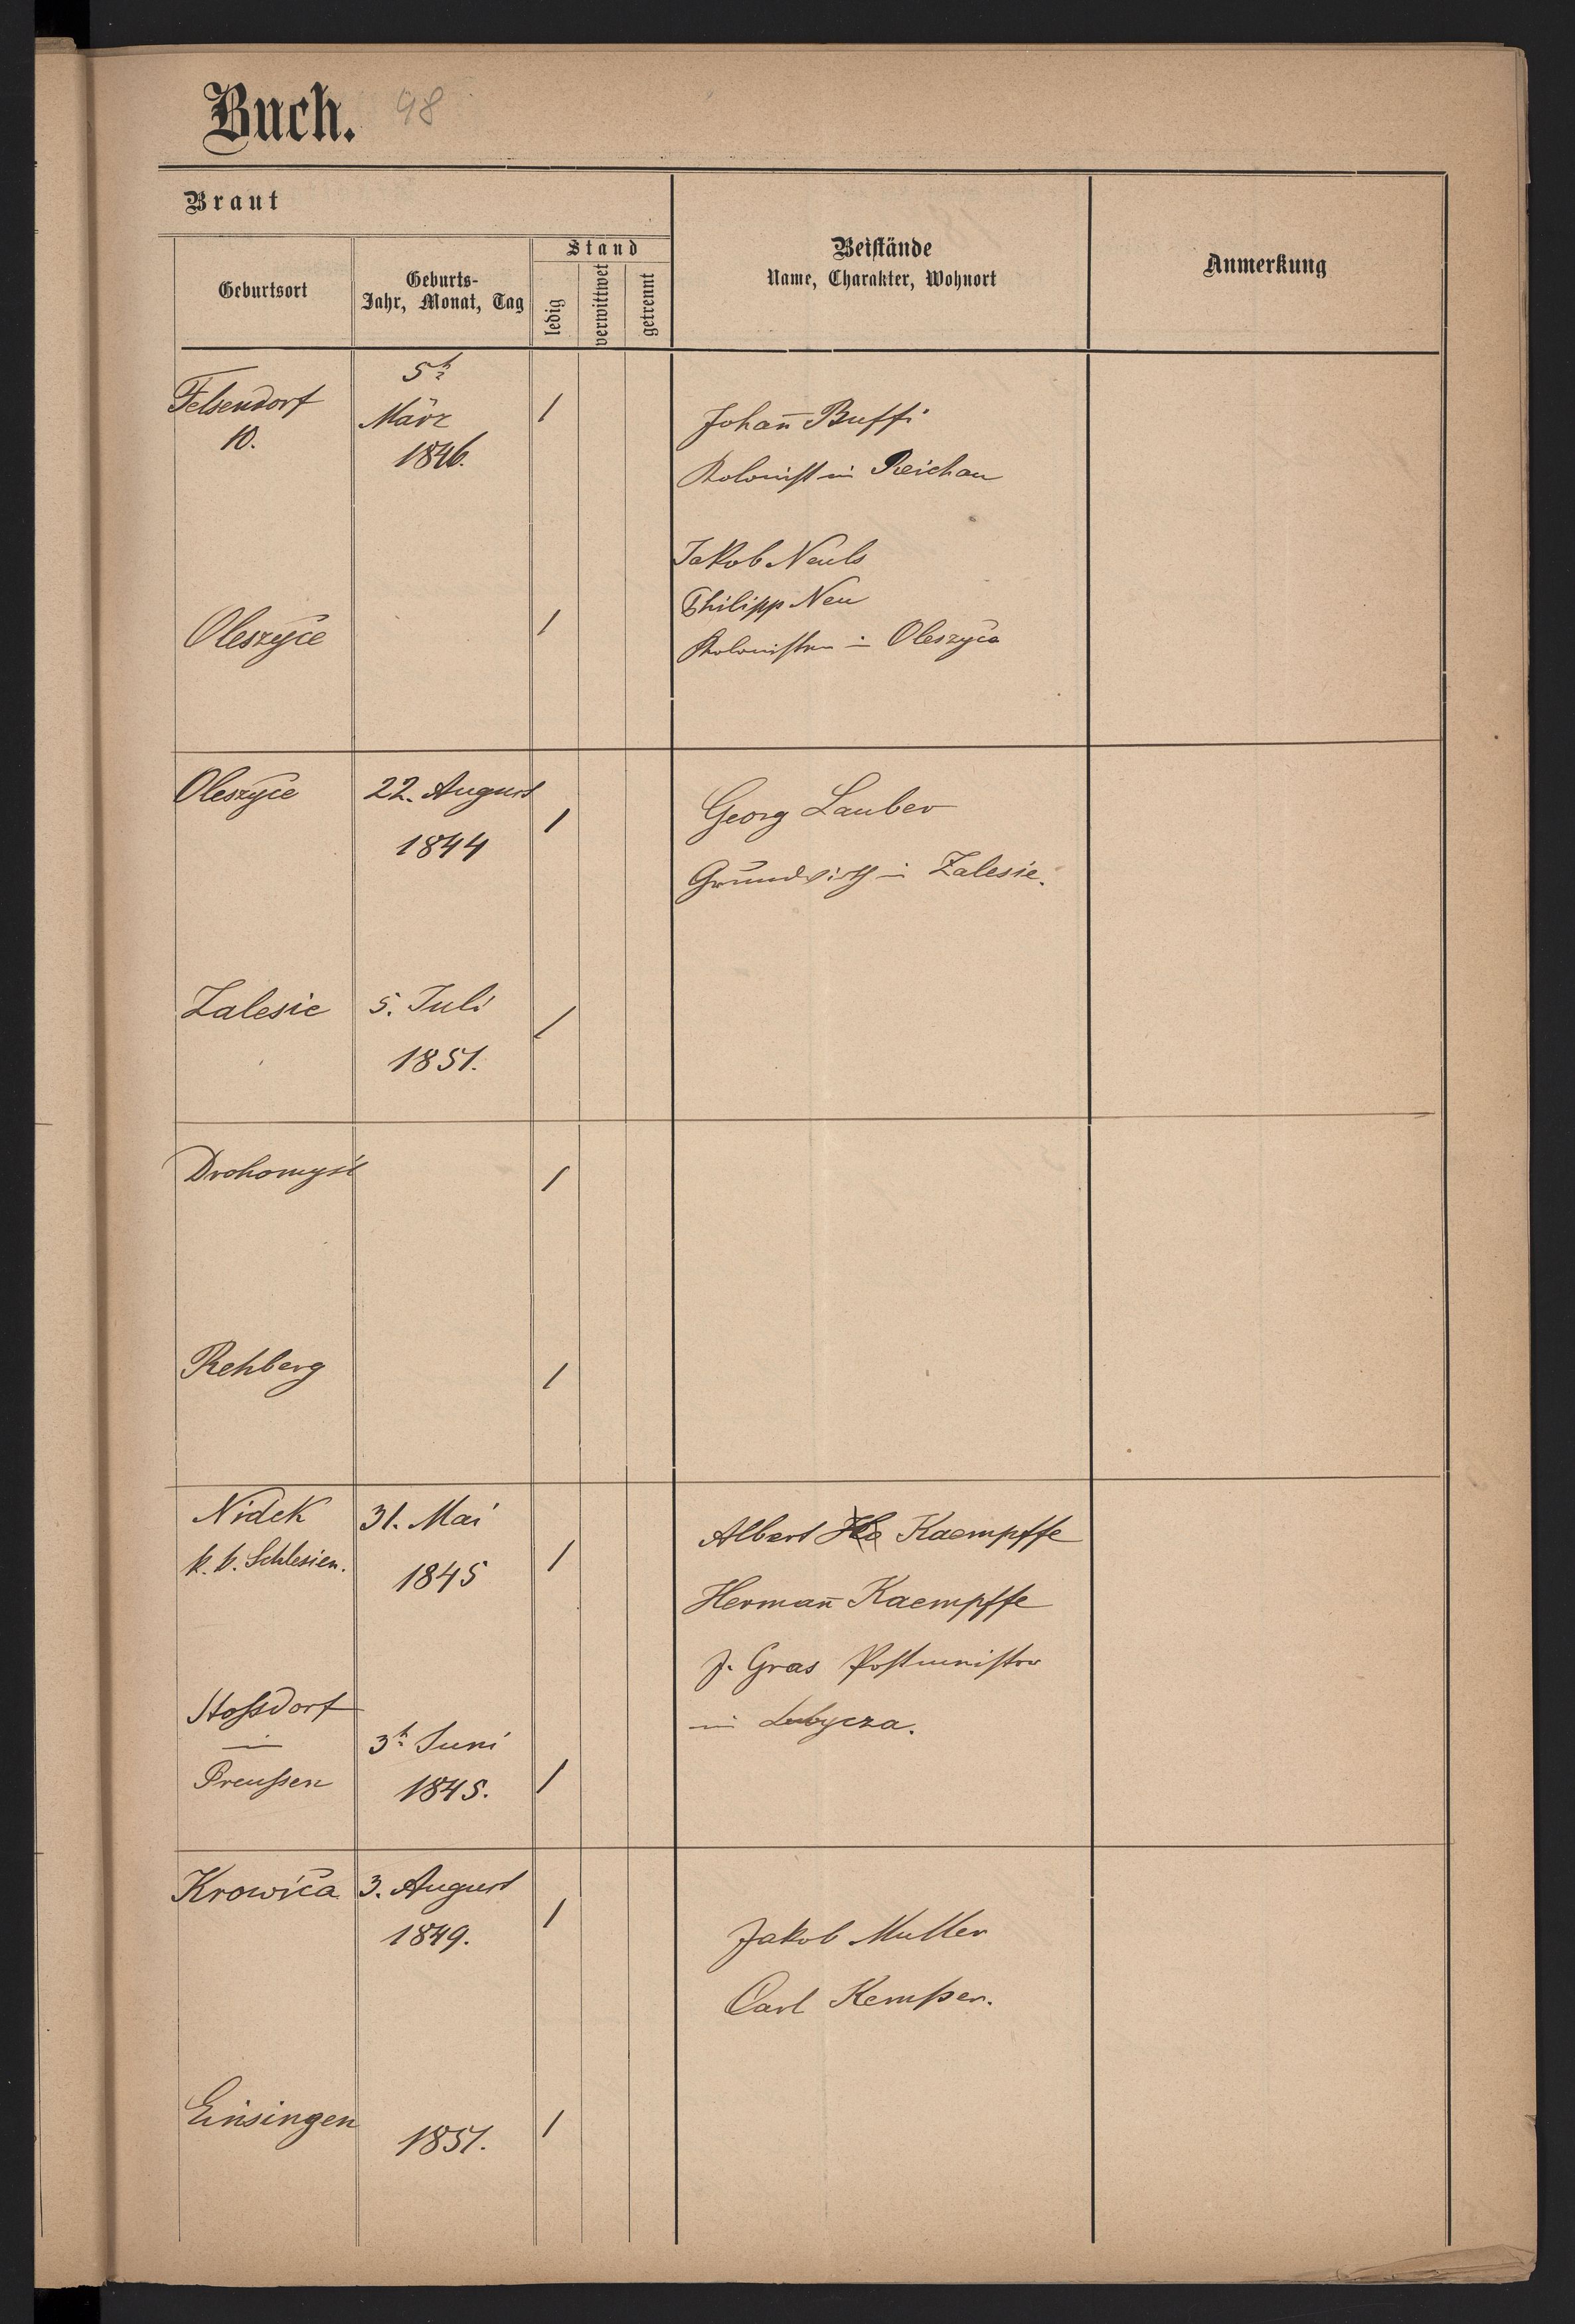 Buch. 98
Braut
Geburtsort
Geburts-
Jahr, Monat, Tag
Stand
ledig
verwittwet
getrennt
Beistände
Name, Charakter, Wohnort
Anmerkung
Felsendorf
10.
5t
März
1846.
/
Johan̄ Buffi
Kolonist in Reichau
Jakob Neuls
Philipp Neu
Kolonisten in Oleszyce
Oleszyce
/
Oleszyce
22. August
1844
/
Georg Lauber
Grundwirth in Zalesie.
Zalesie
5. Juli
1851.
/
Drohomyśl
/
Rehberg
/
Nidek
k. k. Schlesien.
31. Mai
1845
/
Albert Kaempffe
Herman̄ Kaempffe
J. Gras Postminister
in Lubycza.
Stoſsdorf
in
Preuſsen
3t Juni
1845.
/
Krowica
3. August
1849.
/
Jakob Muller
Carl
Einsingen
1851.
/